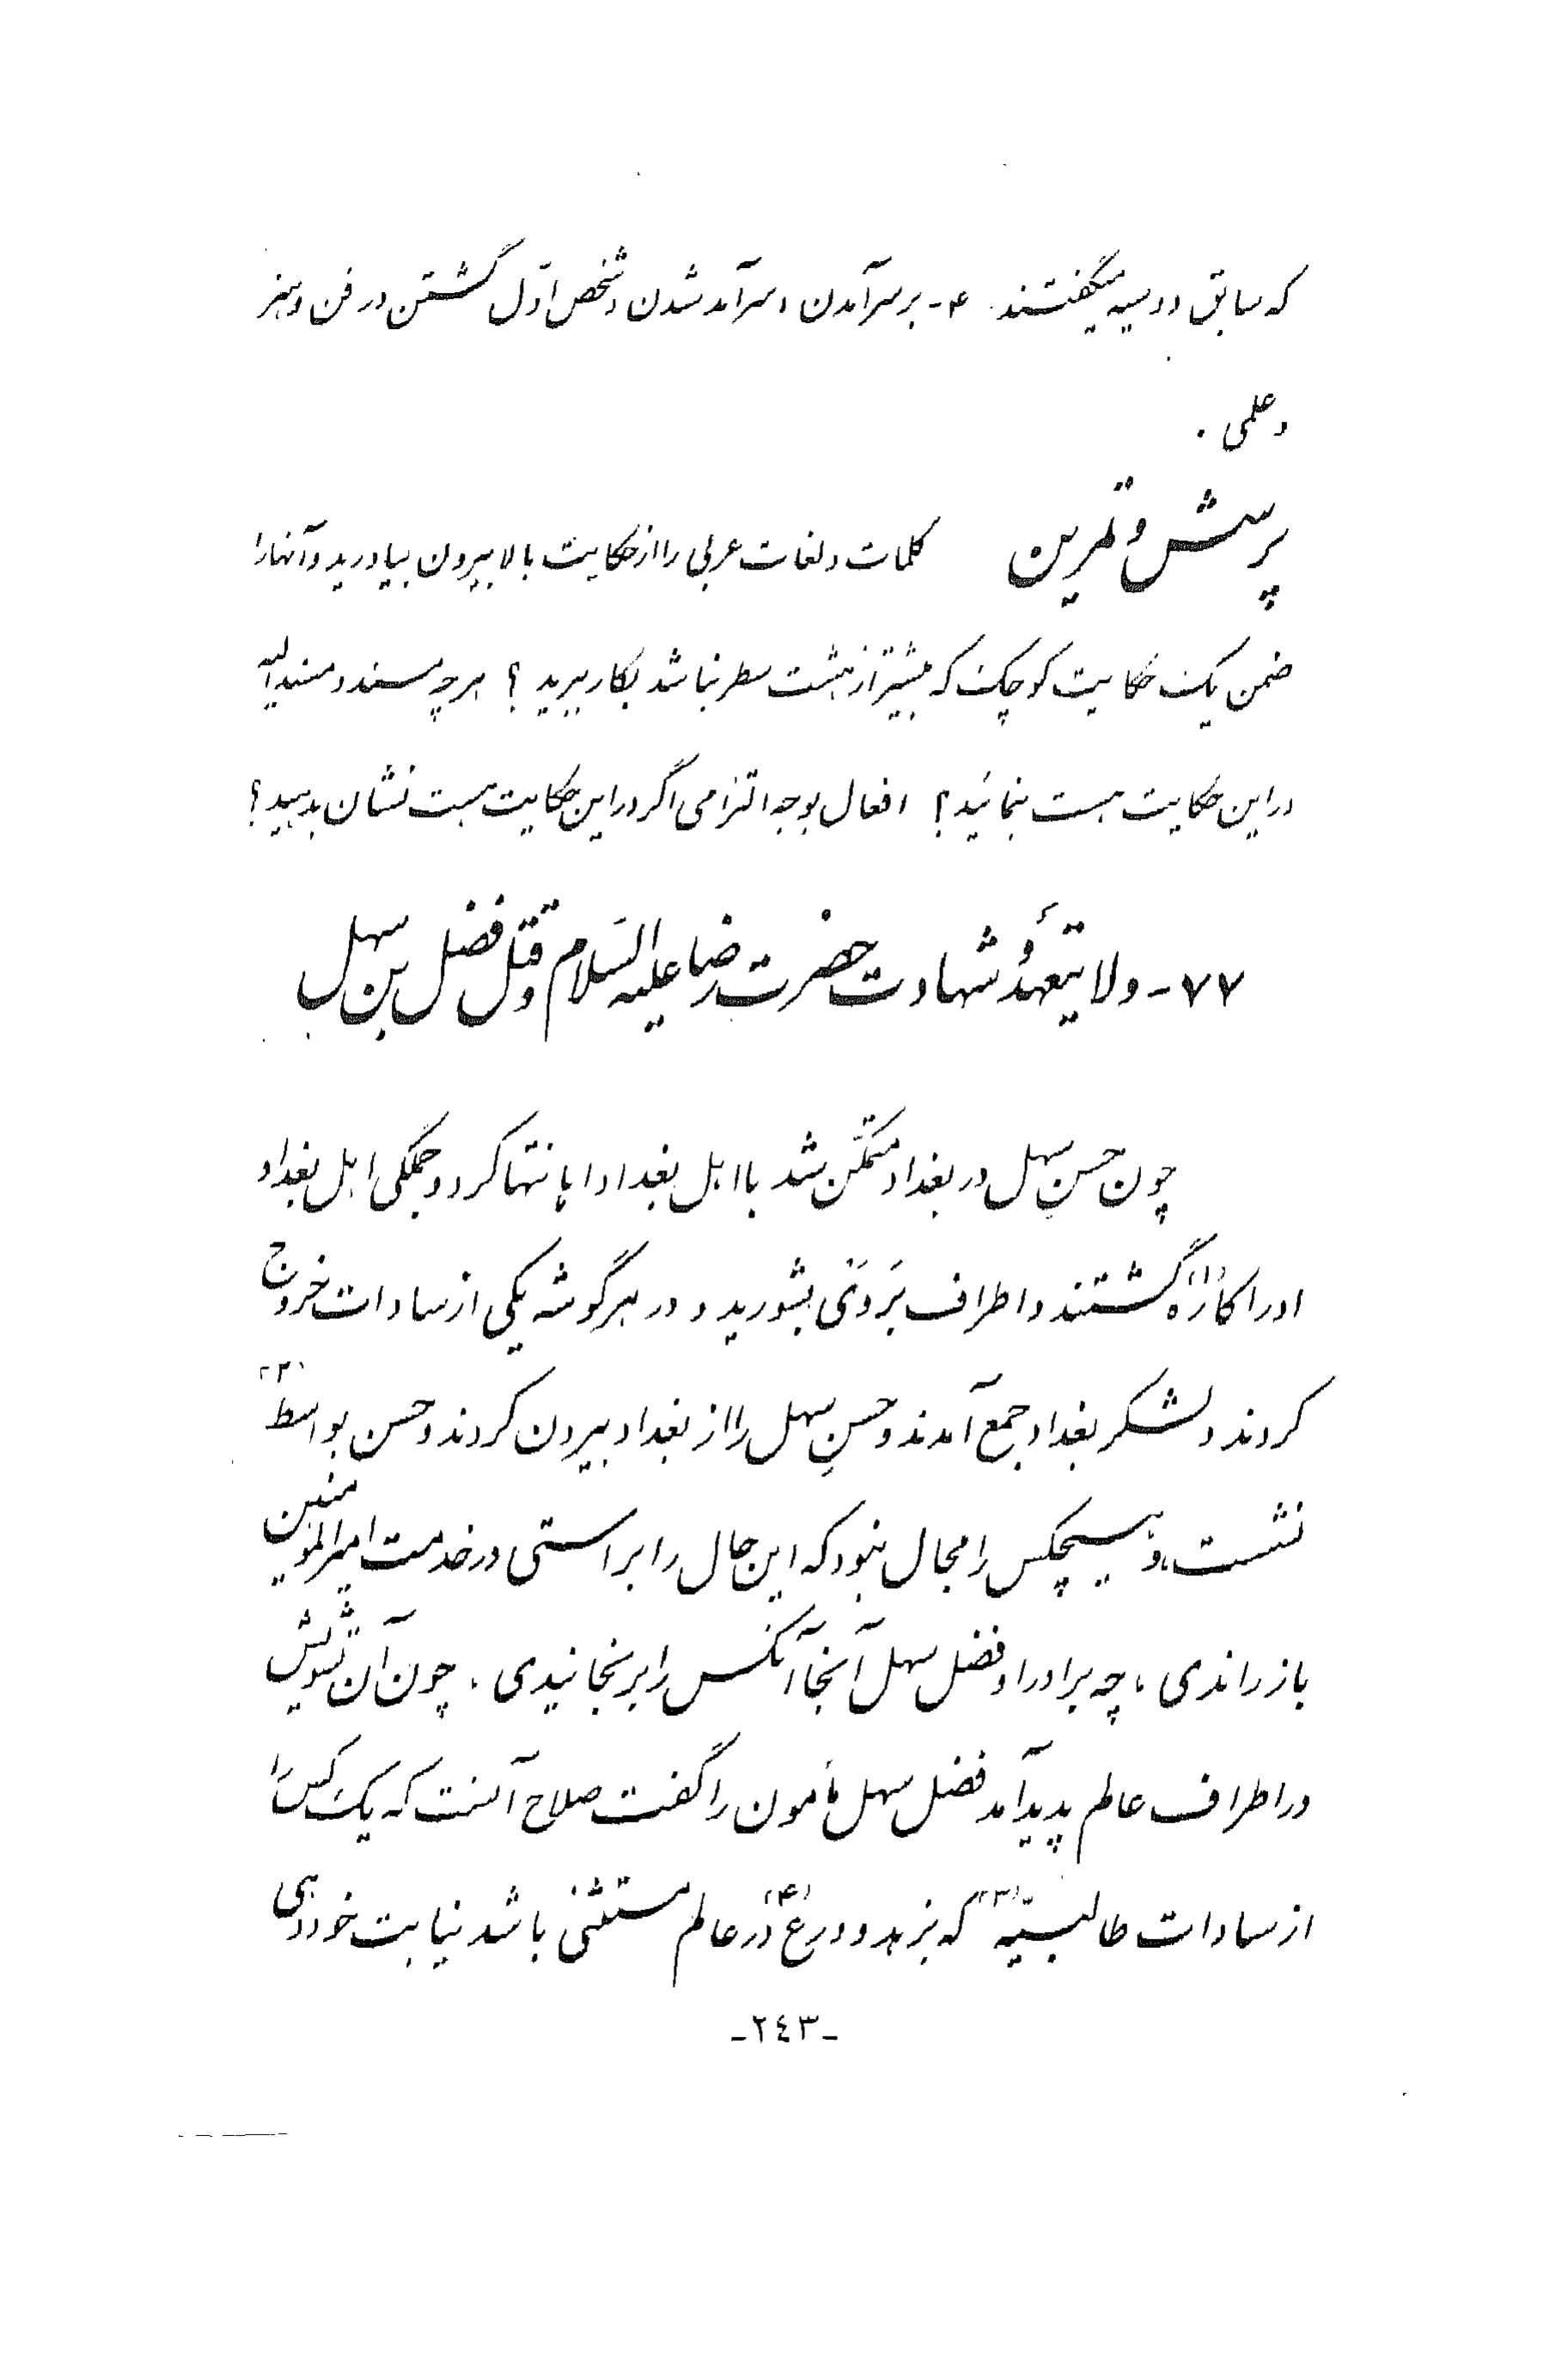 که سابق دوسیه میگفتند. ۴- برسرآمدن، سرآمد شدن و شخص اوّل گشتن در فن و هنر
و علمی.
پرسش و تمرین کلمات و لغات عربی را از حکایت بالا بیرون بیاورید و آنها را
ضمن یک حکایت کوچک که بیشتر از هشت سطر نباشد بکار ببرید؟ هرچه مسند و مسندالیه
در این حکایت هست بنمائید؟ افعال بوجه التزامی اگر در این حکایت هست نشان بدهید؟
۷۷- ولایتعهد و شهادت حضرت رضا علیه السّلام و قتل فضل بن سهل
چون حسن سهل در بغداد متمکّن شد با اهل بغداد اهانتها کرد و جملگی اهل بغداد
او را کاره(۱) گشتند و اطراف بَروَی بشورید و در هر گوشه یکی از سادات خروج
کردند و لشکر بغداد جمع آمدند و حسنِ سهل را از بغداد بیرون کردند و حسن بواسط(۲)
نشست، و هیچکس را مجال نبود که این حال را براستی در خدمت امیرالمومنین
باز راندی، چه برادر او فضل سهل آنجا آنکس را برنجانیدی، چون آن تشویش
در اطراف عالم پدید آمد فضل سهل مأمون را گفت صلاح آنست که یک کس را
از سادات طالبیّه(۳) که بزهد و ورع(۴) در عالم مستثنی باشد نیابت خود دهی
-۲٤۳-